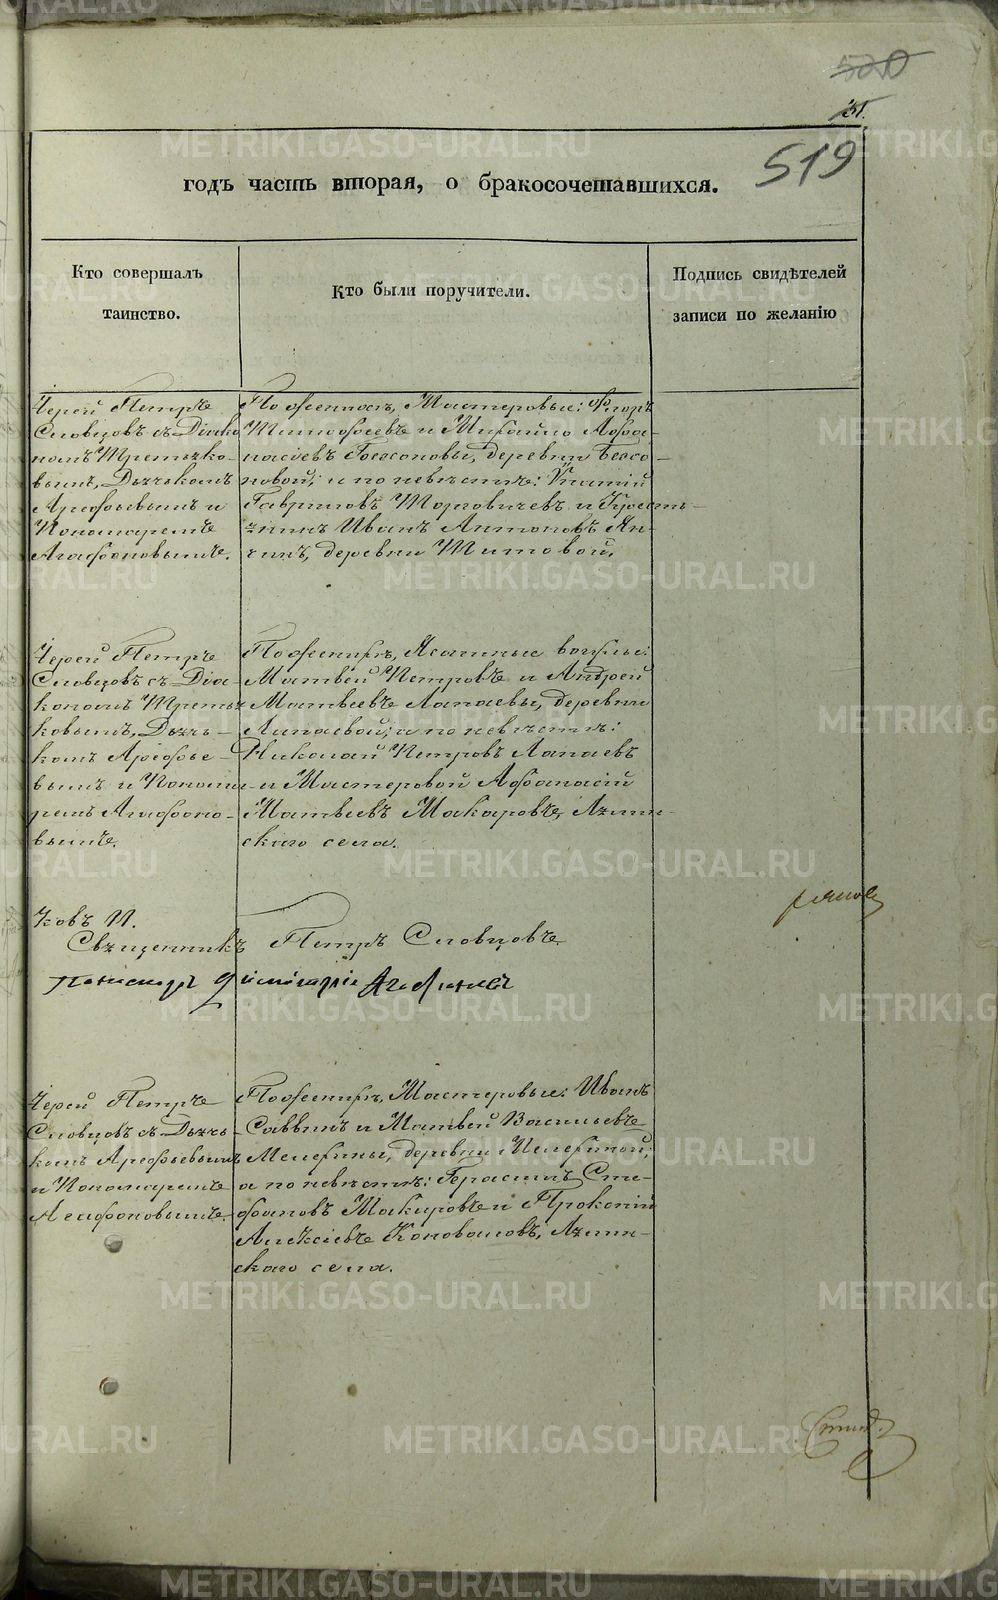 520
51.
519
годъ часть вторая, о бракосочетавшихся.
Кто совершалъ
таинство.
Кто были поручители.
Подпись свидѣтелей
записи по желанію
Іерей Петръ
Словцовъ съ Діако
номъ Третьяко-
вымъ, Дьячькомъ
Арефьевымъ и
Пономаремъ
Агафоновымъ.
По женихѣ, Мастеровые: Флоръ
Тимофеевъ и Михайло Афона-
насіевъ Безсоновы, деревни Безсо-
новой; и по невѣстѣ: Ипатій
Гавриловъ и Кресть-
янинъ Иванъ Антоновъ Ян-
чинъ, деревни Титовой.
Іерей Петръ
Словцовъ съ Діа-
кономъ Треть-
ковымъ, Дьячь-
комъ Арефье-
вымъ и Понома-
ремъ Агафоно-
вымъ.
По женихѣ, Ясашные вогулы:
Матвей Петровъ и Андрей
Матвеевъ Лапаевы, деревни
Лапаевой; а по невѣстѣ:
Николай Петровъ Лапаевъ
и Мастеровой Афанасій
Матвеевъ Макаровъ, Аятт-
скаго села.
ковъ И.
Священникъ Петръ Словцовъ
Пономарь Димитрій Агафоновъ
Іерей Петръ
Словцовъ съ Дьячь-
комъ Арефьевымъ
и Пономаремъ
Агафоновымъ.
По женихѣ, Мастеровые: Иванъ
Саввинъ и Матвей Васильевъ
деревни
а по невѣстѣ: Герасимъ Сте-
фановъ Макаровъ и Прокопій
Алексіевъ Коноваловъ, Аятт-
скаго села.